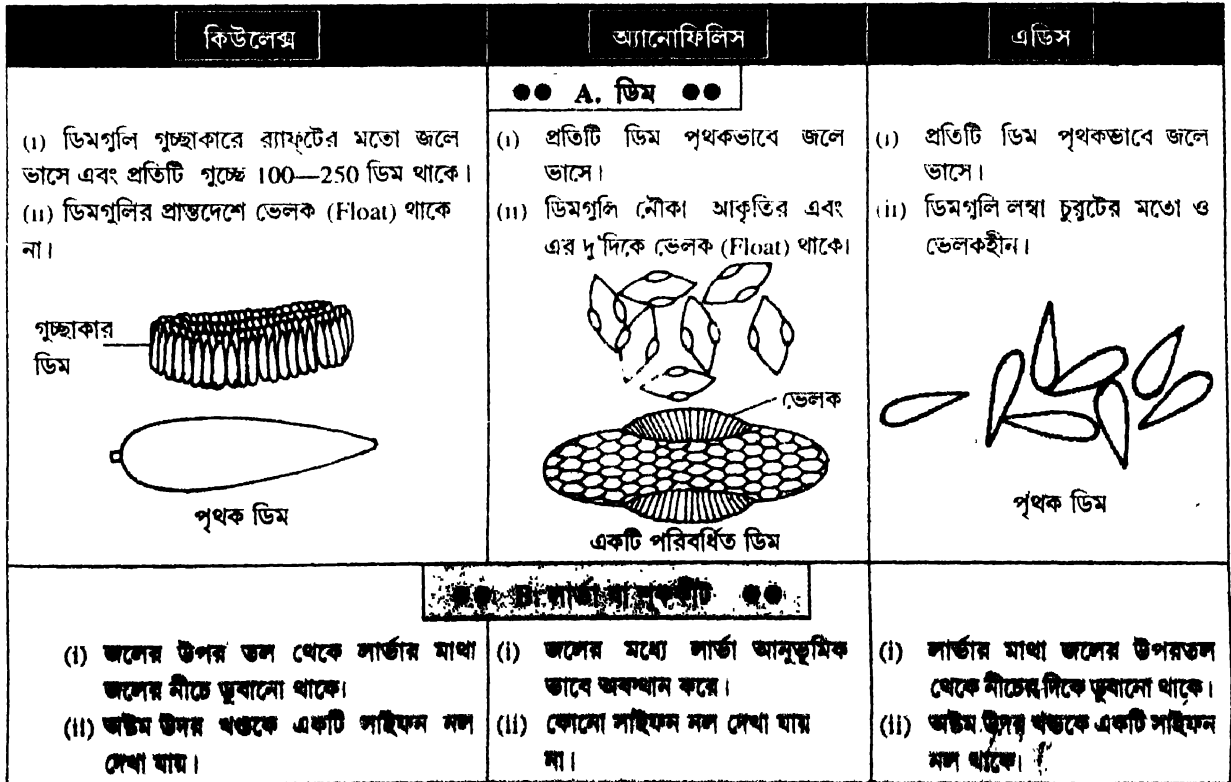 কিউলেক্স
অ্যানোফিলিস
এডিস
●● A. ডিম ●●
(i) ডিমগুলি গুচ্ছাকারে র‍্যাফ্‌টের মতো জলে
ভাসে এবং প্রতিটি গুচ্ছে 100—250 ডিম থাকে।
(ii) ডিমগুলির প্রান্তদেশে ভেলক (Float) থাকে
না।
গুচ্ছাকার
ডিম
পৃথক ডিম
(i) প্রতিটি ডিম পৃথকভাবে জলে
ভাসে।
(ii) ডিমগুলি নৌকা আকৃতির এবং
এর দু'দিকে ভেলক (Float) থাকে।
ভেলক
একটি পরিবর্ধিত ডিম
(i) প্রতিটি ডিম পৃথকভাবে জলে
ভাসে।
(ii) ডিমগুলি লম্বা চুরুটের মতো ও
ভেলকহীন।
পৃথক ডিম
●● B. লার্ভা বা শূককীট ●●
(i) জলের উপর তল থেকে লার্ভার মাথা
জলের নীচে ডুবানো থাকে।
(ii) অষ্টম উদর খণ্ডকে একটি সাইফন নল
দেখা যায়।
(i) জলের মধ্যে লার্ভা আনুভূমিক
ভাবে অবস্থান করে।
(ii) কোনো সাইফন নল দেখা যায়
না।
(i) লার্ভার মাথা জলের উপরতল
থেকে নীচের দিকে ডুবানো থাকে।
(ii) অষ্টম উদর খণ্ডকে একটি সাইফন
নল থাকে।